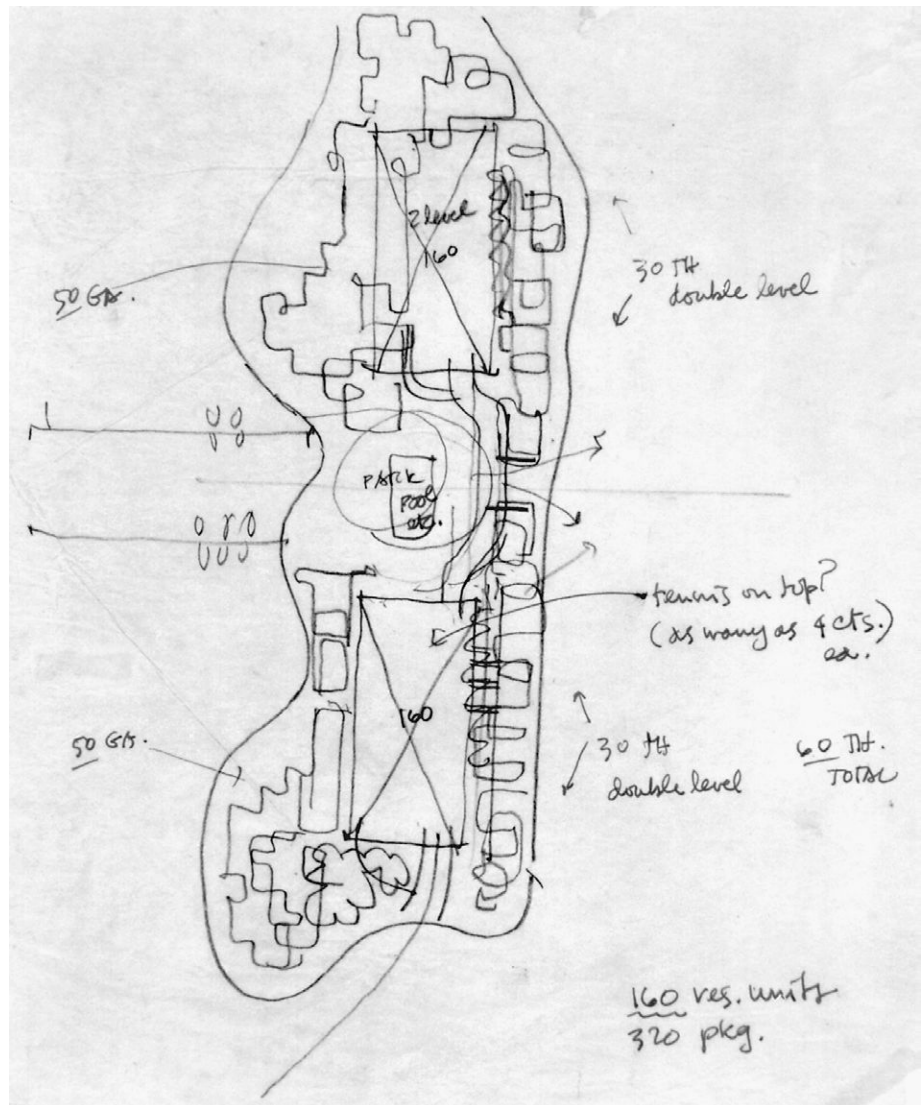 2 level
160
50 GA.
30 TH
double level
PARK
POOL
etc.
tennis on top?
(as many as 4 cts.)
ea.
160
50 GA.
30 TH
double level
60 TH.
TOTAL
160 res. units
320 pkg.